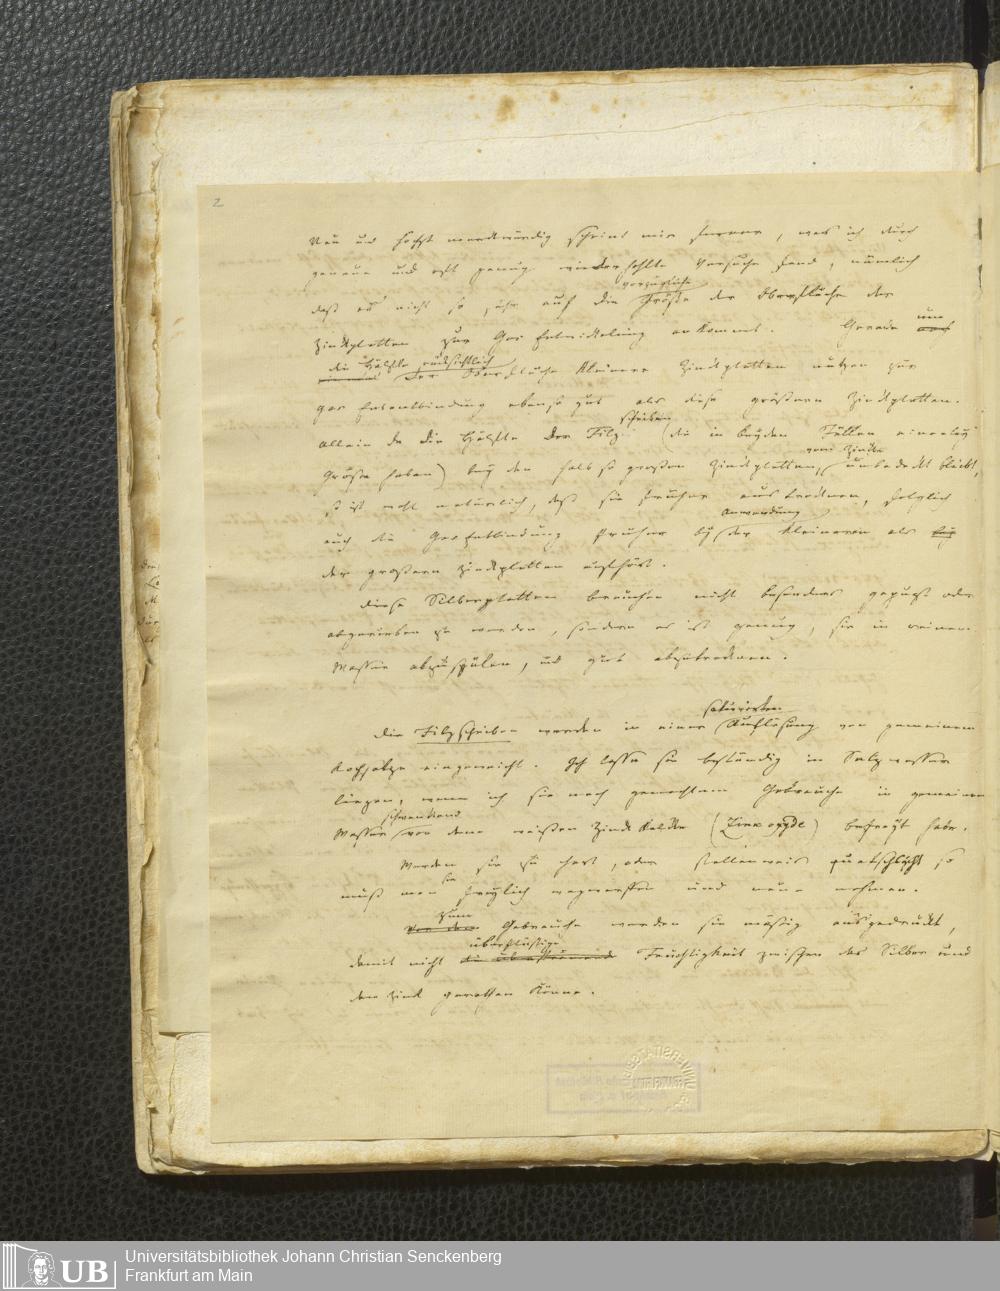 2
Neu und höchst merkwürdig scheint mir ferner, was ich durch
genaue und oft genug wiederhohlte Versuche fand, nämlich
vorzügliche
daß es nicht so sehr auf die Größe der Oberfläche der
Zinkplatten zur Gas Entwickelung ankommt. Gerade
um
die Hälfte rücksichtlich
der Oberfläche kleinere Zinkplatten nützen zur
Gas Entbindung ebenso gut als diese größern Zinkplatten.
scheiben
Allein da die Hälfte der Filz (die in beyden Fällen einerley
vom Zinke
Größe haben) bey den halb so großen Zinkplatten, unbedekt bleibt,
so ist recht natürlich, daß sie früher austroknen, folglich
Anwendung
auch die Gas Entbindung früher bey der kleineren als bey
der großern Zinkplatten aufhört.
Diese Silberplatten brauchen nicht besonders geputzt oder
abgerieben zu werden, sondern es ist genug, sie in reinem
Wasser abzuspülen, und gut abzutroknen.
saturirten
Die Filzscheiben werden in einer Auflösung von gemeinem
Kochsalze eingeweicht. Ich lasse sie beständig in Salzwasser
liegen, wenn ich sie nach gemachtem Gebrauche in gemeinem
schwenkend
Wasser von dem weißen Zink Kalke (Zinkoxyde) befreyt habe.
Werden sie zu hart, oder stellenweis quatschlicht so
sie
muß man freylich wegwerffen und neue nehmen.
Zum
Vor dem Gebrauche werden sie mäßig ausgedrukt,
überflüßige
damit nicht die überströmende Feuchtigkeit zwischen das Silber und
den Zink gerathen könne.
UB
Universitätsbibliothek Johann Christian Senckenberg
Frankfurt am Main